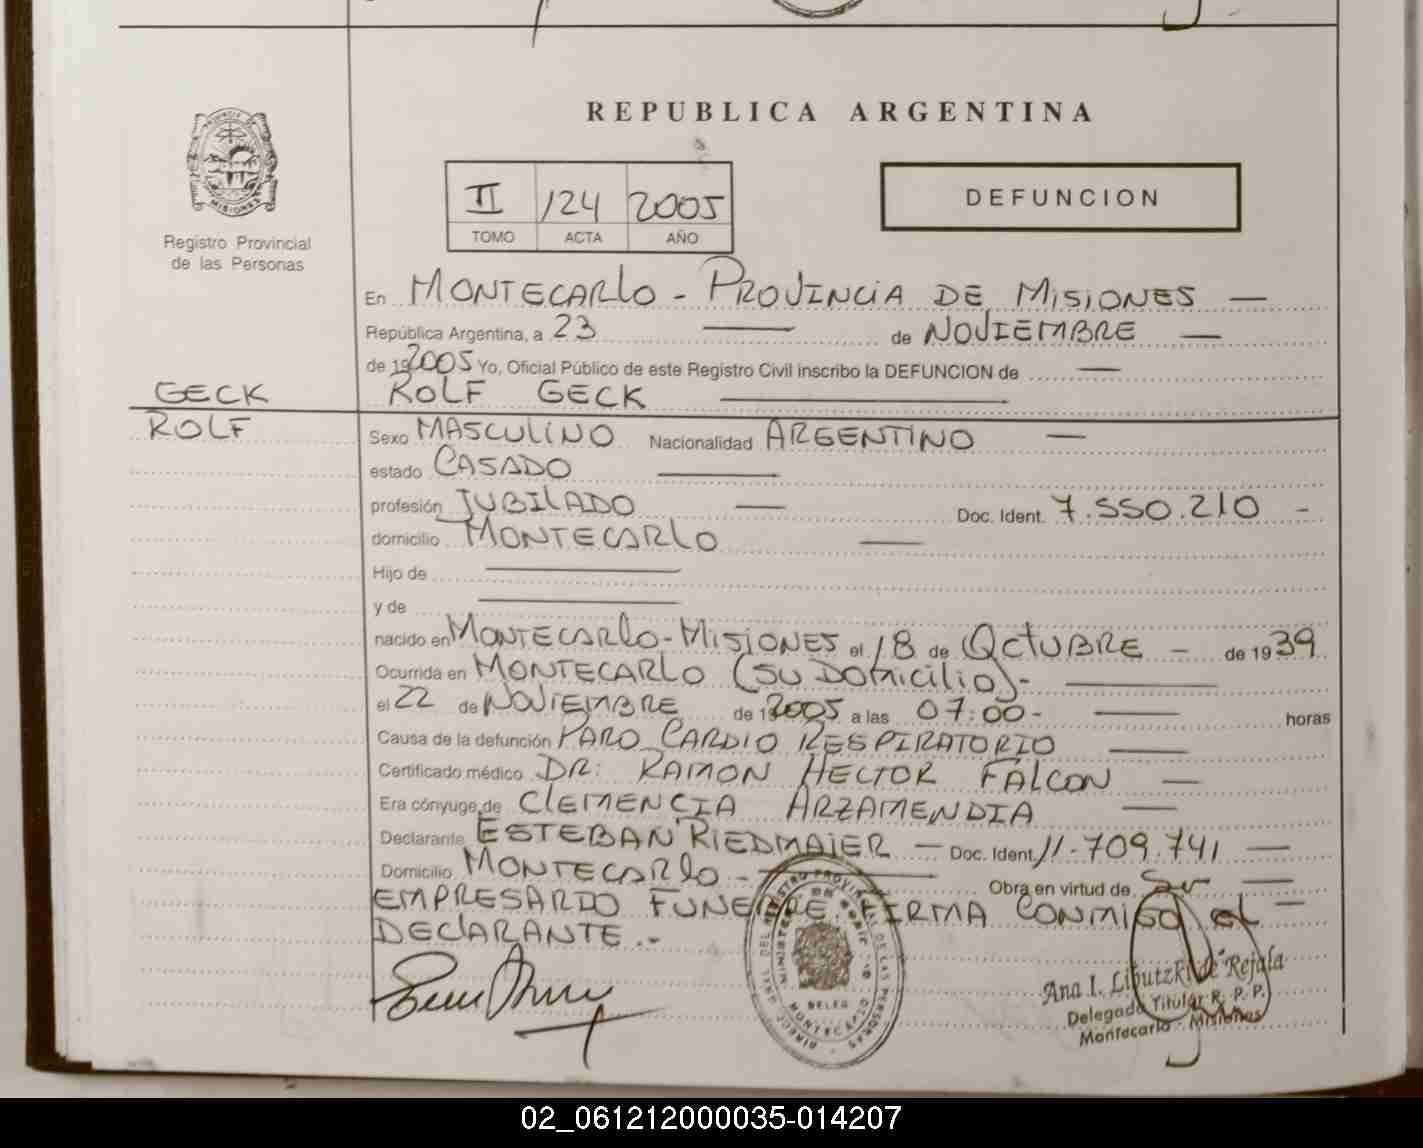 REPUBLICA ARGENTINA
II 124 2005
TOMO ACTA AÑO
DEFUNCION
PROVINCIA DE MISIONES
Registro Provincial
de las Personas
En MONTECARLO - PROVINCIA DE MISIONES —
República Argentina, a 23 — de NOVIEMBRE —
de 192005 Yo, Oficial Público de este Registro Civil inscribo la DEFUNCION de —
GECK
ROLF
ROLF GECK —
Sexo MASCULINO Nacionalidad ARGENTINO —
estado CASADO —
profesión JUBILADO — Doc. Ident. 7.550.210 -
domicilio MONTECARLO —
Hijo de —
y de —
nacido en MONTECARLO-MISIONES el 18 de OCTUBRE - de 1939
Ocurrida en MONTECARLO (SU DOMICILIO)- —
el 22 de NOVIEMBRE de 192005 a las 07:00- — horas
Causa de la defunción PARO CARDIO RESPIRATORIO —
Certificado médico DR: RAMON HECTOR FALCON —
Era cónyuge de CLEMENCIA ARZAMENDIA —
Declarante ESTEBAN RIEDMAIER — Doc. Ident. 11.709.741 —
Domicilio MONTECARLO - — Obra en virtud de Ser —
EMPRESARIO FUNEBRE. FIRMA CONMIGO el -
DECLARANTE.-
DIRECC. GRAL. DEL REGISTRO PROVINCIAL DE LAS PERSONAS
MINISTERIO DE GOBIERNO
DELEG
MONTECARLO
Ana I. Liputzki de Rejala
Delegado Titular R. P. P.
Montecarlo - Misiones
02_061212000035-014207